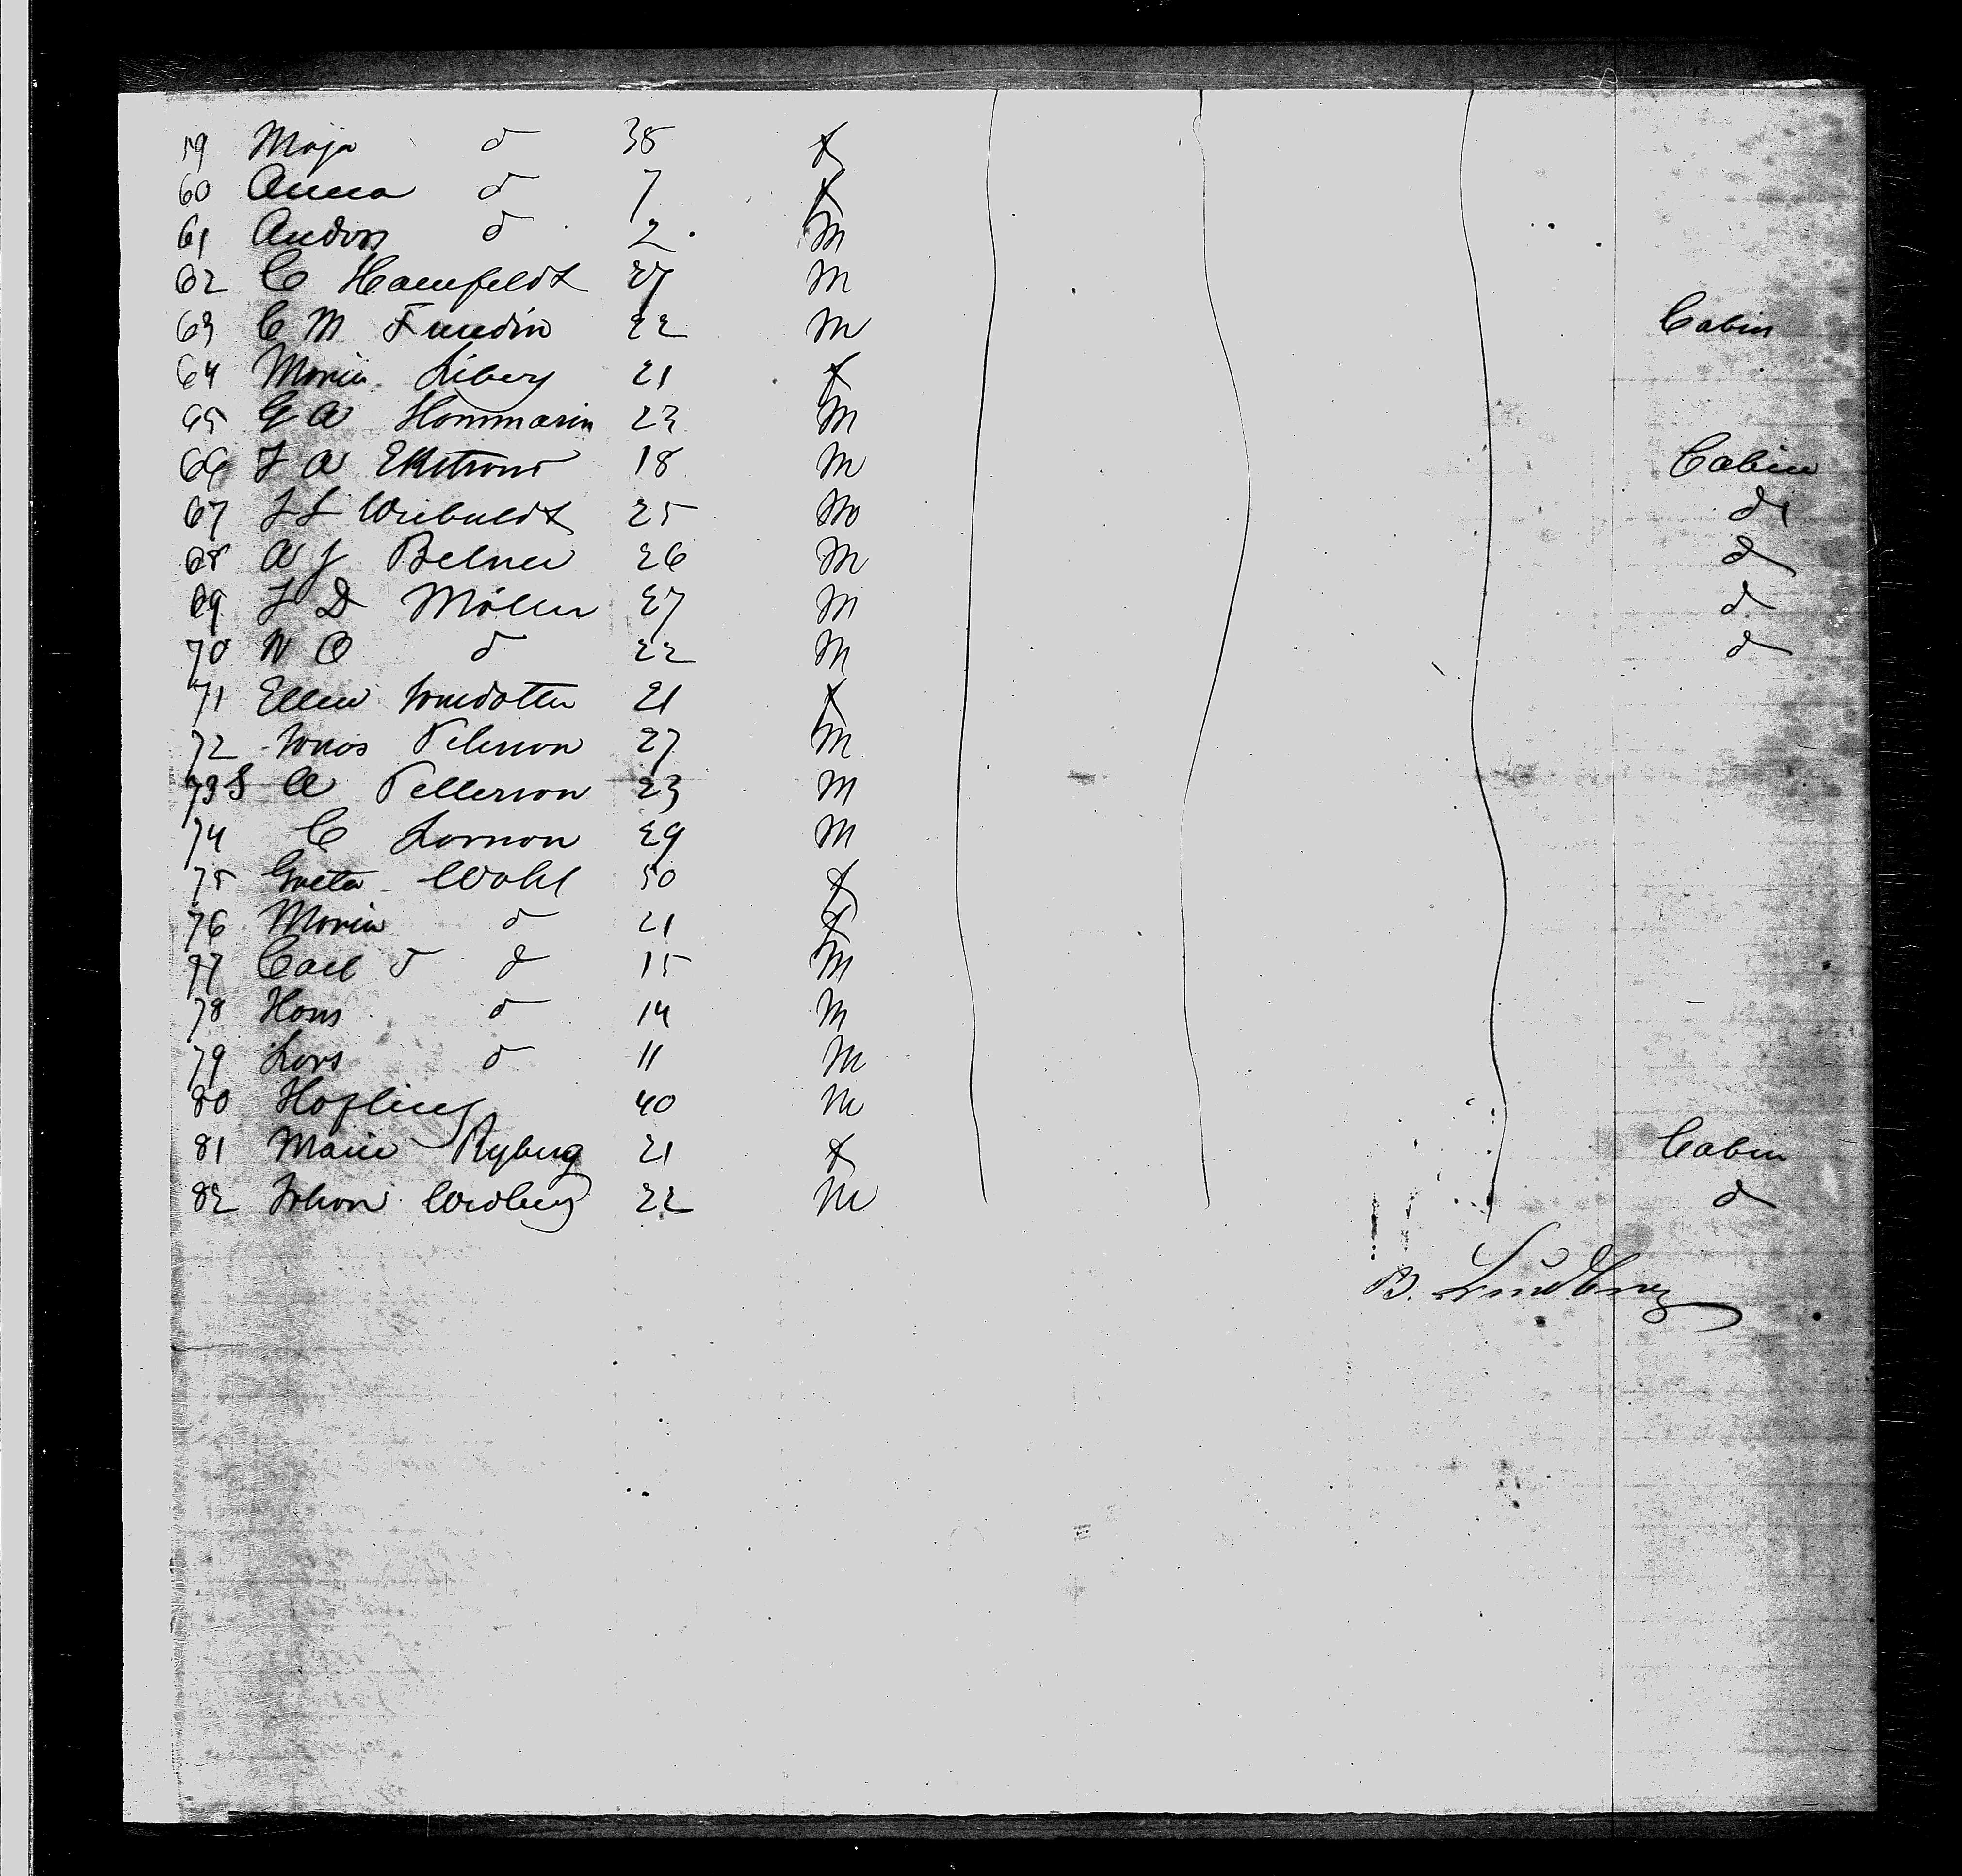 59 Maja d 38 f
60 Anna d 7 f
61 Anders d 2 M
62 C Hamfeldt 27 M
63 C M Fundin 22 M Cabin
64 Maria Siberg 21 f
65 G A Hammarin 23 M
66 F A Ekstrom 18 M Cabin
67 F L Wieboldt 25 M do
68 A J Belner 26 M d
69 F D Möller 27 M d
70 N O d 22 M d
71 Ellen Jonsdotter 21 f
72 Jonas Peterson 27 M
73 S A Petterson 23 M
74 C Larsson 29 M
75 Greta Wahl 50 f
76 Maria d 21 f
77 Carl J d 15 M
78 Hans d 14 M
79 Lars d 11 M
80 Hofling 40 M
81 Marie Ryberg 21 f Cabin
82 Johan Widberg 22 M d
B. Lundberg